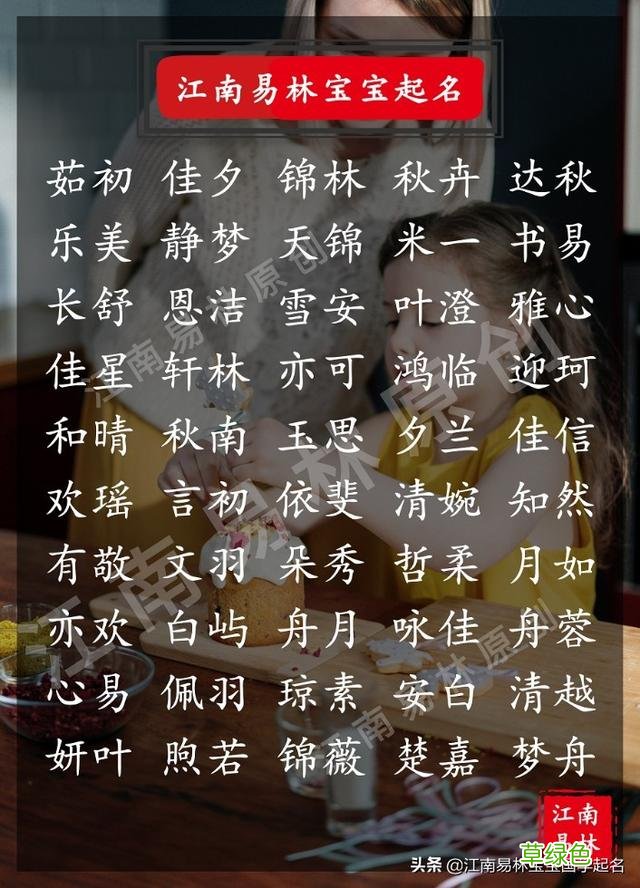 江南易林宝宝起名
茹初 佳夕 锦林 秋卉 达秋
乐美 静梦 天锦 米一 书易
长舒 恩洁 雪安 叶澄 雅心
佳星 轩林 亦可 鸿临 迎珂
和晴 秋南 玉思 夕兰 佳信
欢瑶 言初 依斐 清婉 知然
有敬 文羽 朵秀 哲柔 月如
亦欢 白屿 舟月 咏佳 舟蓉
心易 佩羽 琼素 安白 清越
妍叶 煦若 锦薇 楚嘉 梦舟
江南易林原创
江南易林原创
江南易林原创
江南
易林
草绿色
头条 @江南易林宝宝国学起名